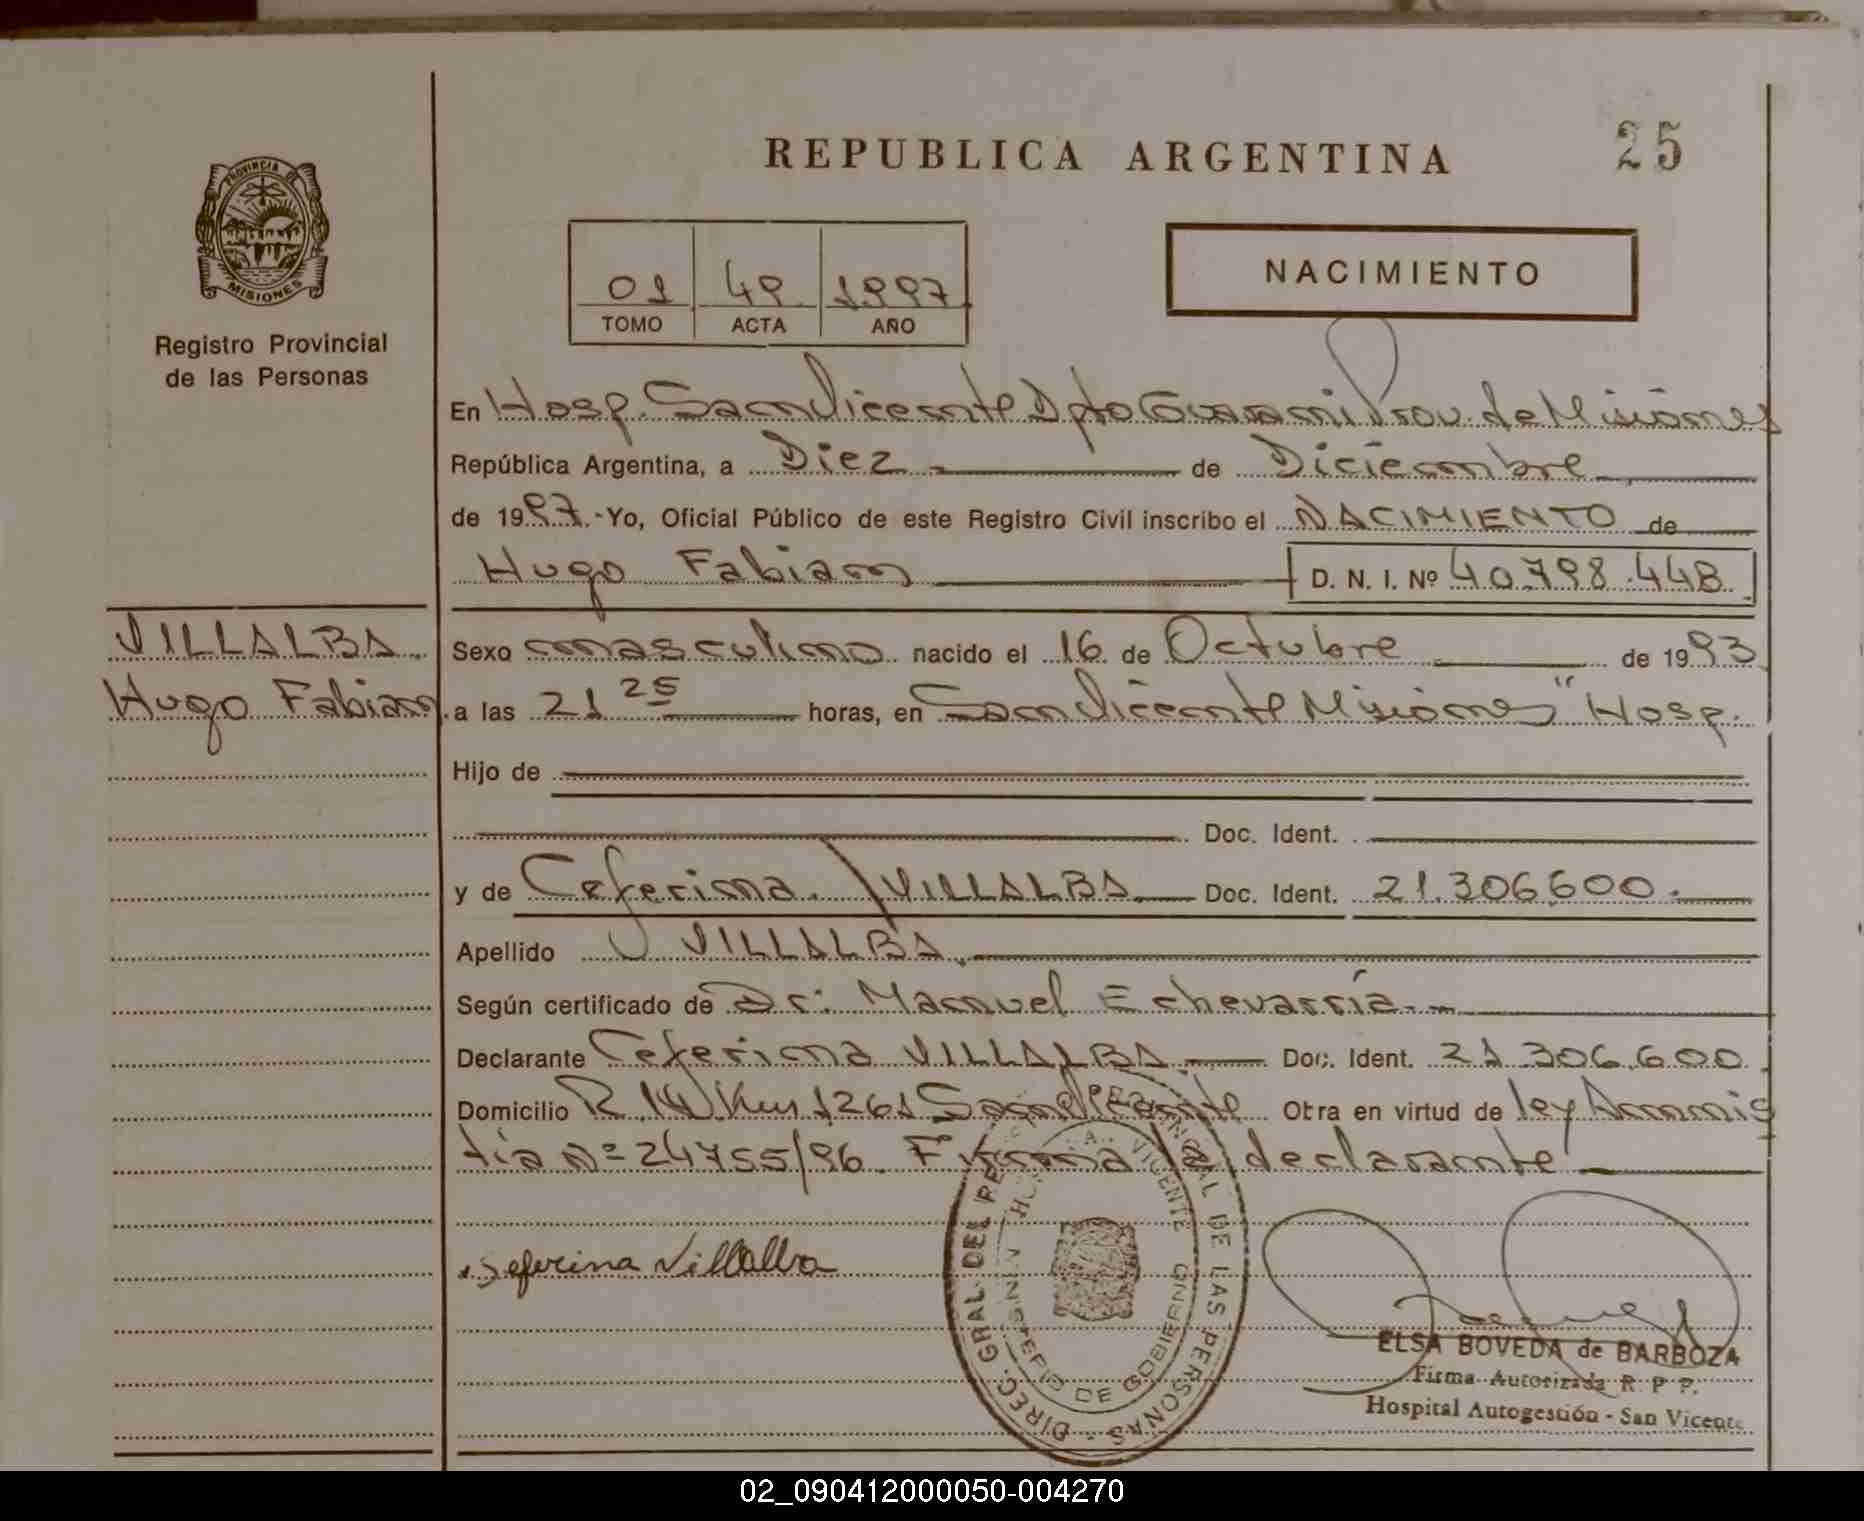 25
REPUBLICA ARGENTINA
PROVINCIA DE
MISIONES
Registro Provincial
de las Personas
01 49 1997
TOMO ACTA AÑO
NACIMIENTO
En Hosp. San Vicente Dpto Guarani Prov. de Misiones
República Argentina, a Diez de Diciembre
de 1997.-Yo, Oficial Público de este Registro Civil inscribo el NACIMIENTO de
Hugo Fabian D. N. I. Nº 40.798.448
VILLALBA
Hugo Fabian
Sexo masculino nacido el 16 de Octubre de 1993
a las 21 25 horas, en San Vicente Misiones" Hosp.
Hijo de
Doc. Ident.
y de Ceferina VILLALBA Doc. Ident. 21.306600.
Apellido VILLALBA
Según certificado de Dr: Manuel Echevarría
Declarante Ceferina VILLALBA Doc. Ident. 21.306.600
Domicilio R 14 Km 1261 San Vicente Otra en virtud de ley Amnis
tía Nº 24755/96. Firma la declarante
Seferina Villalba
DIREC. GRAL. DEL REG. PROVINCIAL DE LAS PERSONAS
MINISTERIO DE GOBIERNO
VICENTE
ELSA BOVEDA de BARBOZA
Firma Autorizada R. P P.
Hospital Autogestión - San Vicente
02_090412000050-004270